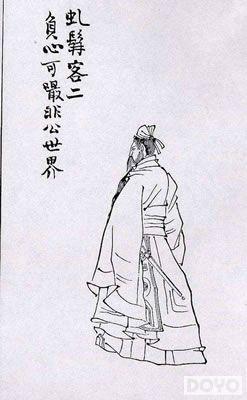 虬髯客二
負心可嘬非公世界
DOYO